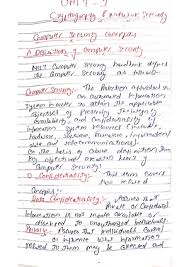 UNIT - I
Cryptography & Network Security
Computer Security Concepts
A Definition of Computer Security
NIST Computer Security handbook defines
the Computer Security as follows
Computer Security: The Protection afforded to
an automated Information
System in order to attain the applicable
objectives of Preserving the Integrity
availability and Confidentiality of
Information System resources (includes
hardware, software, firmware, information/
data and telecommunications).
On the basis of above
Computer Security:
Confidentiality: This term covers
two related
Concepts:
Data Confidentiality: Assures that
Private or Confidential
Information is not made available or
disclosed to unauthorized individuals
Privacy: Assures that Individuals Control
or influence what information
related to them may be Collected and